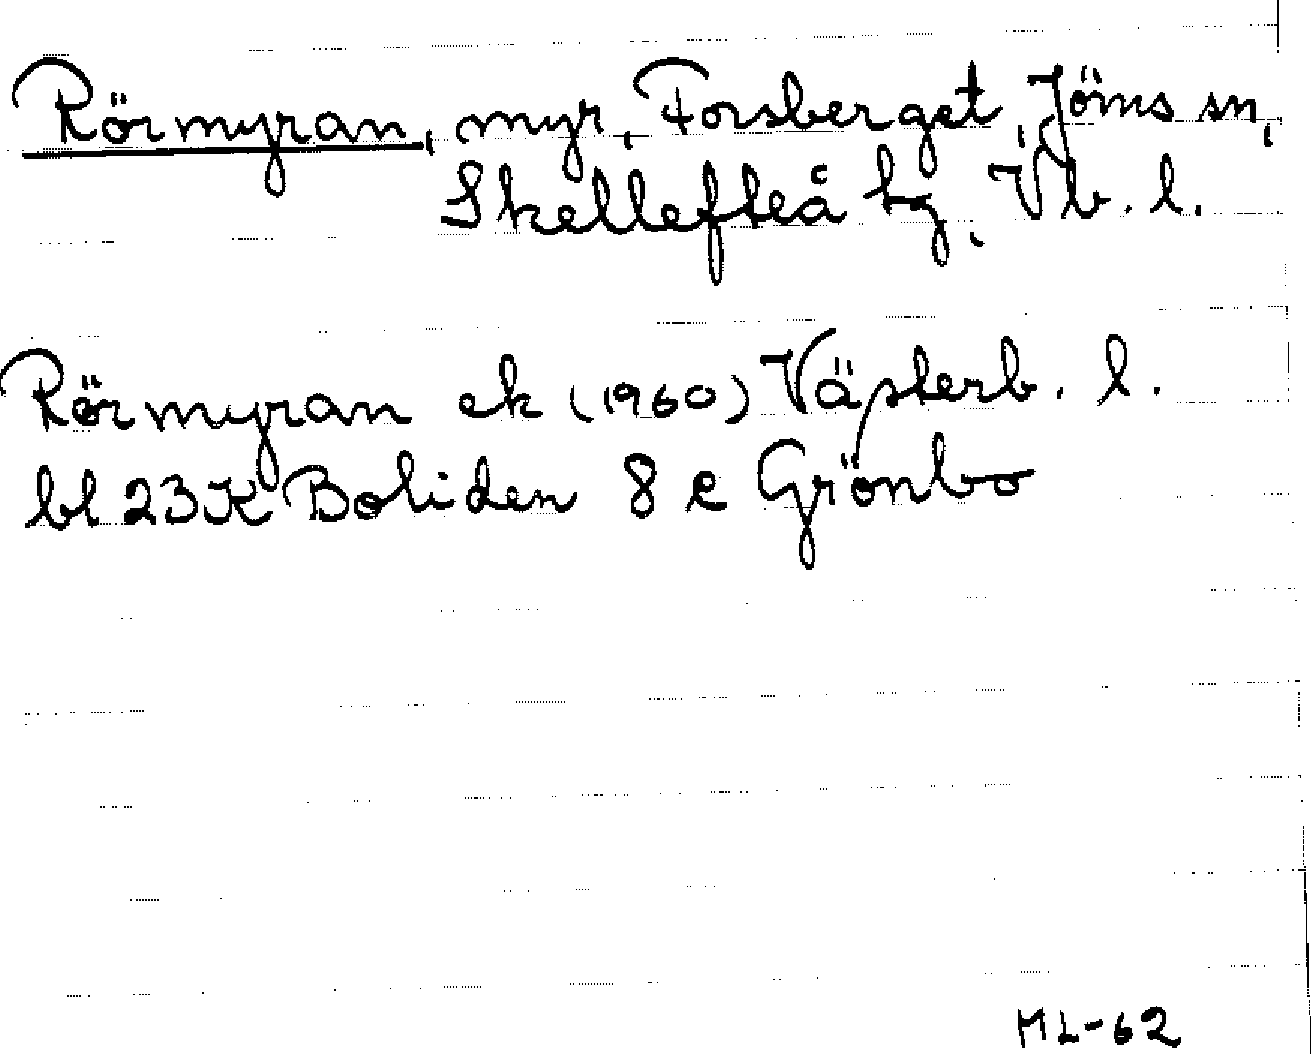 Rörmyran, myr, Forsberget, Jörns sn,
Skellefteå tg, Vb. l.
Rörmyran ek (1960) Västerb. l.
bl 23K Boliden 8 e Grönbo
ML-62